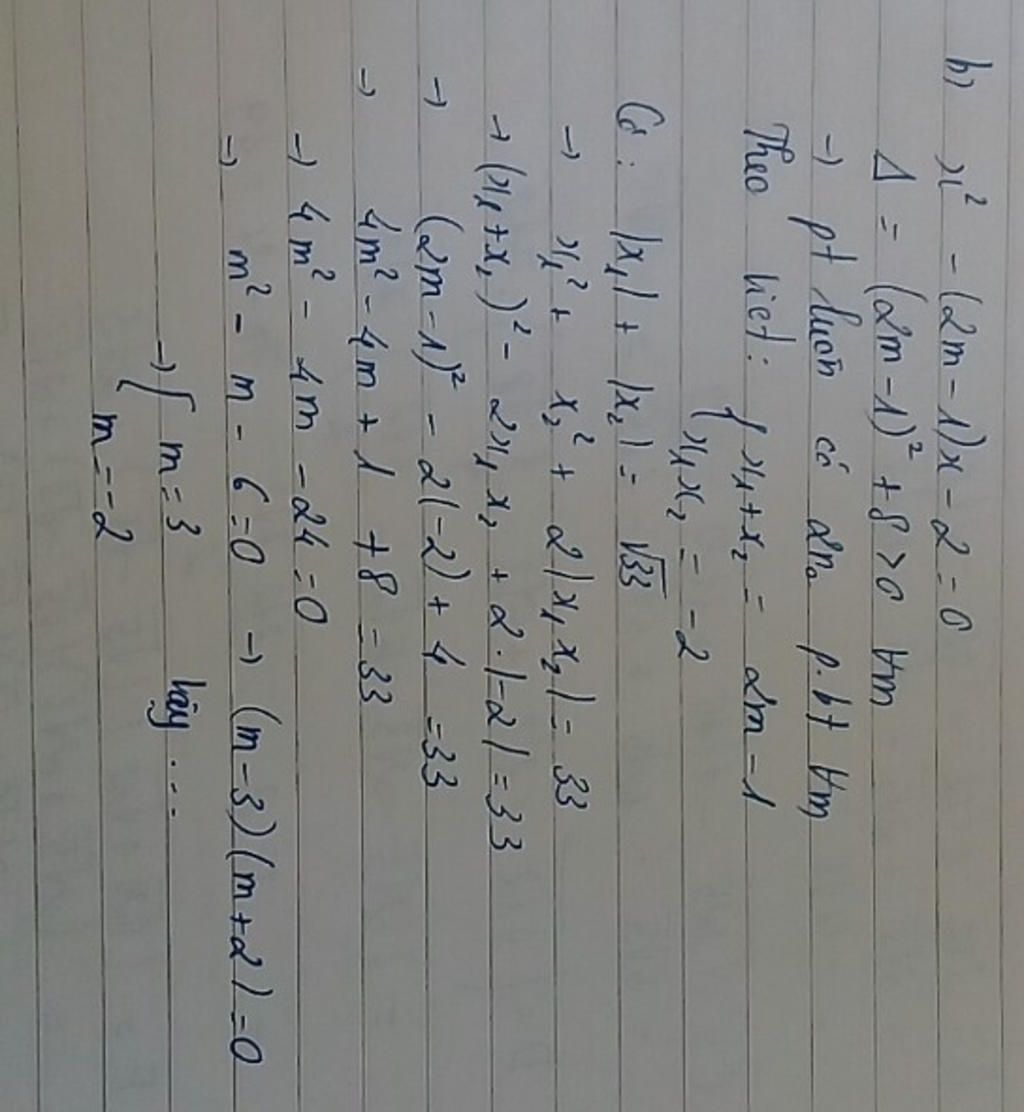 b) x² - (2m-1)x - 2 = 0
Δ = (2m-1)² + 8 > 0 ∀m
→ pt luôn có 2n₀ p.bt ∀m
Theo Viet: { x₁+x₂ = 2m-1
x₁x₂ = -2
Có: |x₁| + |x₂| = √33
→ x₁² + x₂² + 2|x₁x₂| = 33
→ (x₁+x₂)² - 2x₁x₂ + 2.|-2| = 33
→ (2m-1)² - 2(-2) + 4 = 33
→ 4m² - 4m + 1 + 8 = 33
→ 4m² - 4m - 24 = 0
→ m² - m - 6 = 0 → (m-3)(m+2) = 0
→ [ m = 3 Vậy ...
m = -2